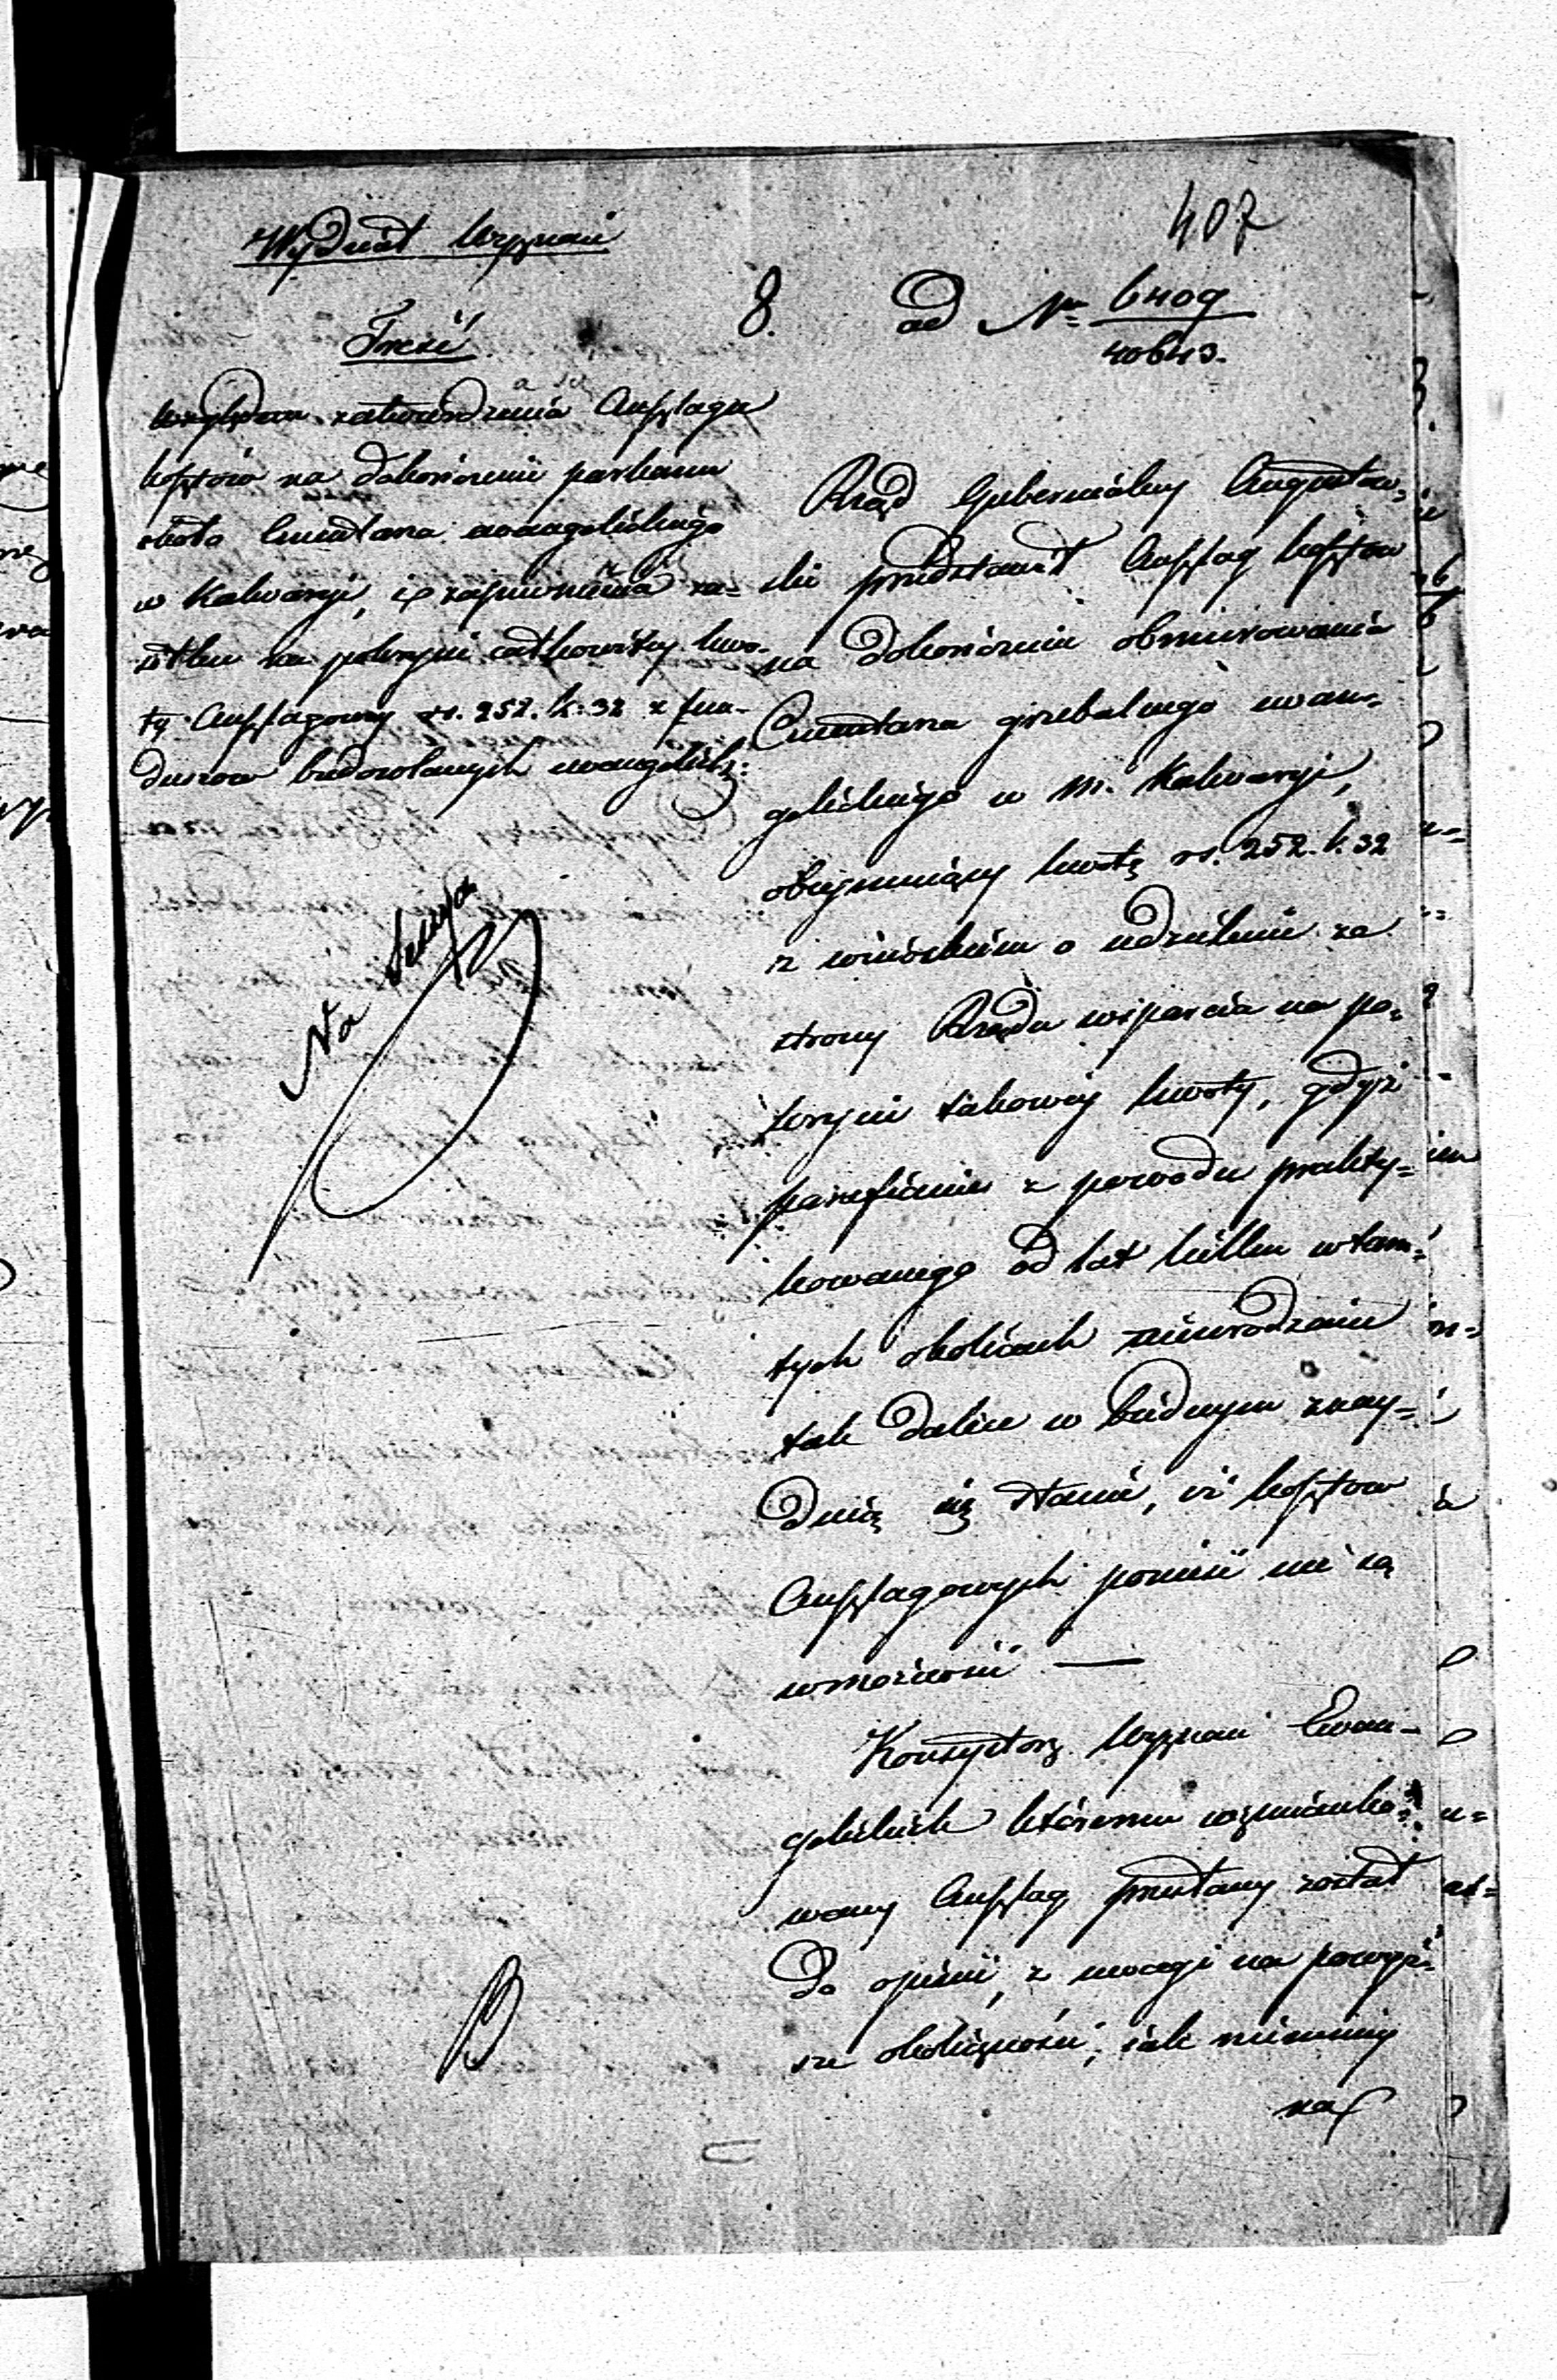 407
Wydział Wyznań
8. ad Nr 6409
40643.
Treść
względem zatwierdzenia Anszlagu
kosztów na dokończenie parkanu
około Cmentarza ewangelickiego
w Kalwaryi, i zapewnienia za-
siłku na pokrycie całkowitey kwo-
ty Anszlagowey rs. 252. k. 32 z fun-
duszow budowlanych ewangelick:
Na Sessyą
Rząd Gubernialny Augustow-
ski przedstawił Anszlag kosztow
na dokończenie obmurowania
Cmentarza grzebalnego ewan-
gelickiego w M. Kalwaryi,
obeymuiący kwotę rs. 252. k. 32
z wnioskiem o udzielenie ze
strony Rządu wsparcia na po-
krycie takowey kwoty, gdyż
parafianie z powodu prakty-
kowanego od lat kilku w tam-
tych okolicach nieurodzaiu
tak dalece w biednym znay-
duią się stanie, iż kosztow
Anszlagowych ponieść nie są
w możności —
Konsystorz Wyznań Ewan-
gelickich któremu wzmianko-
wany Anszlag przesłany został
do opinii, z uwagi na powyż-
sze okoliczności, iako niemniey
na